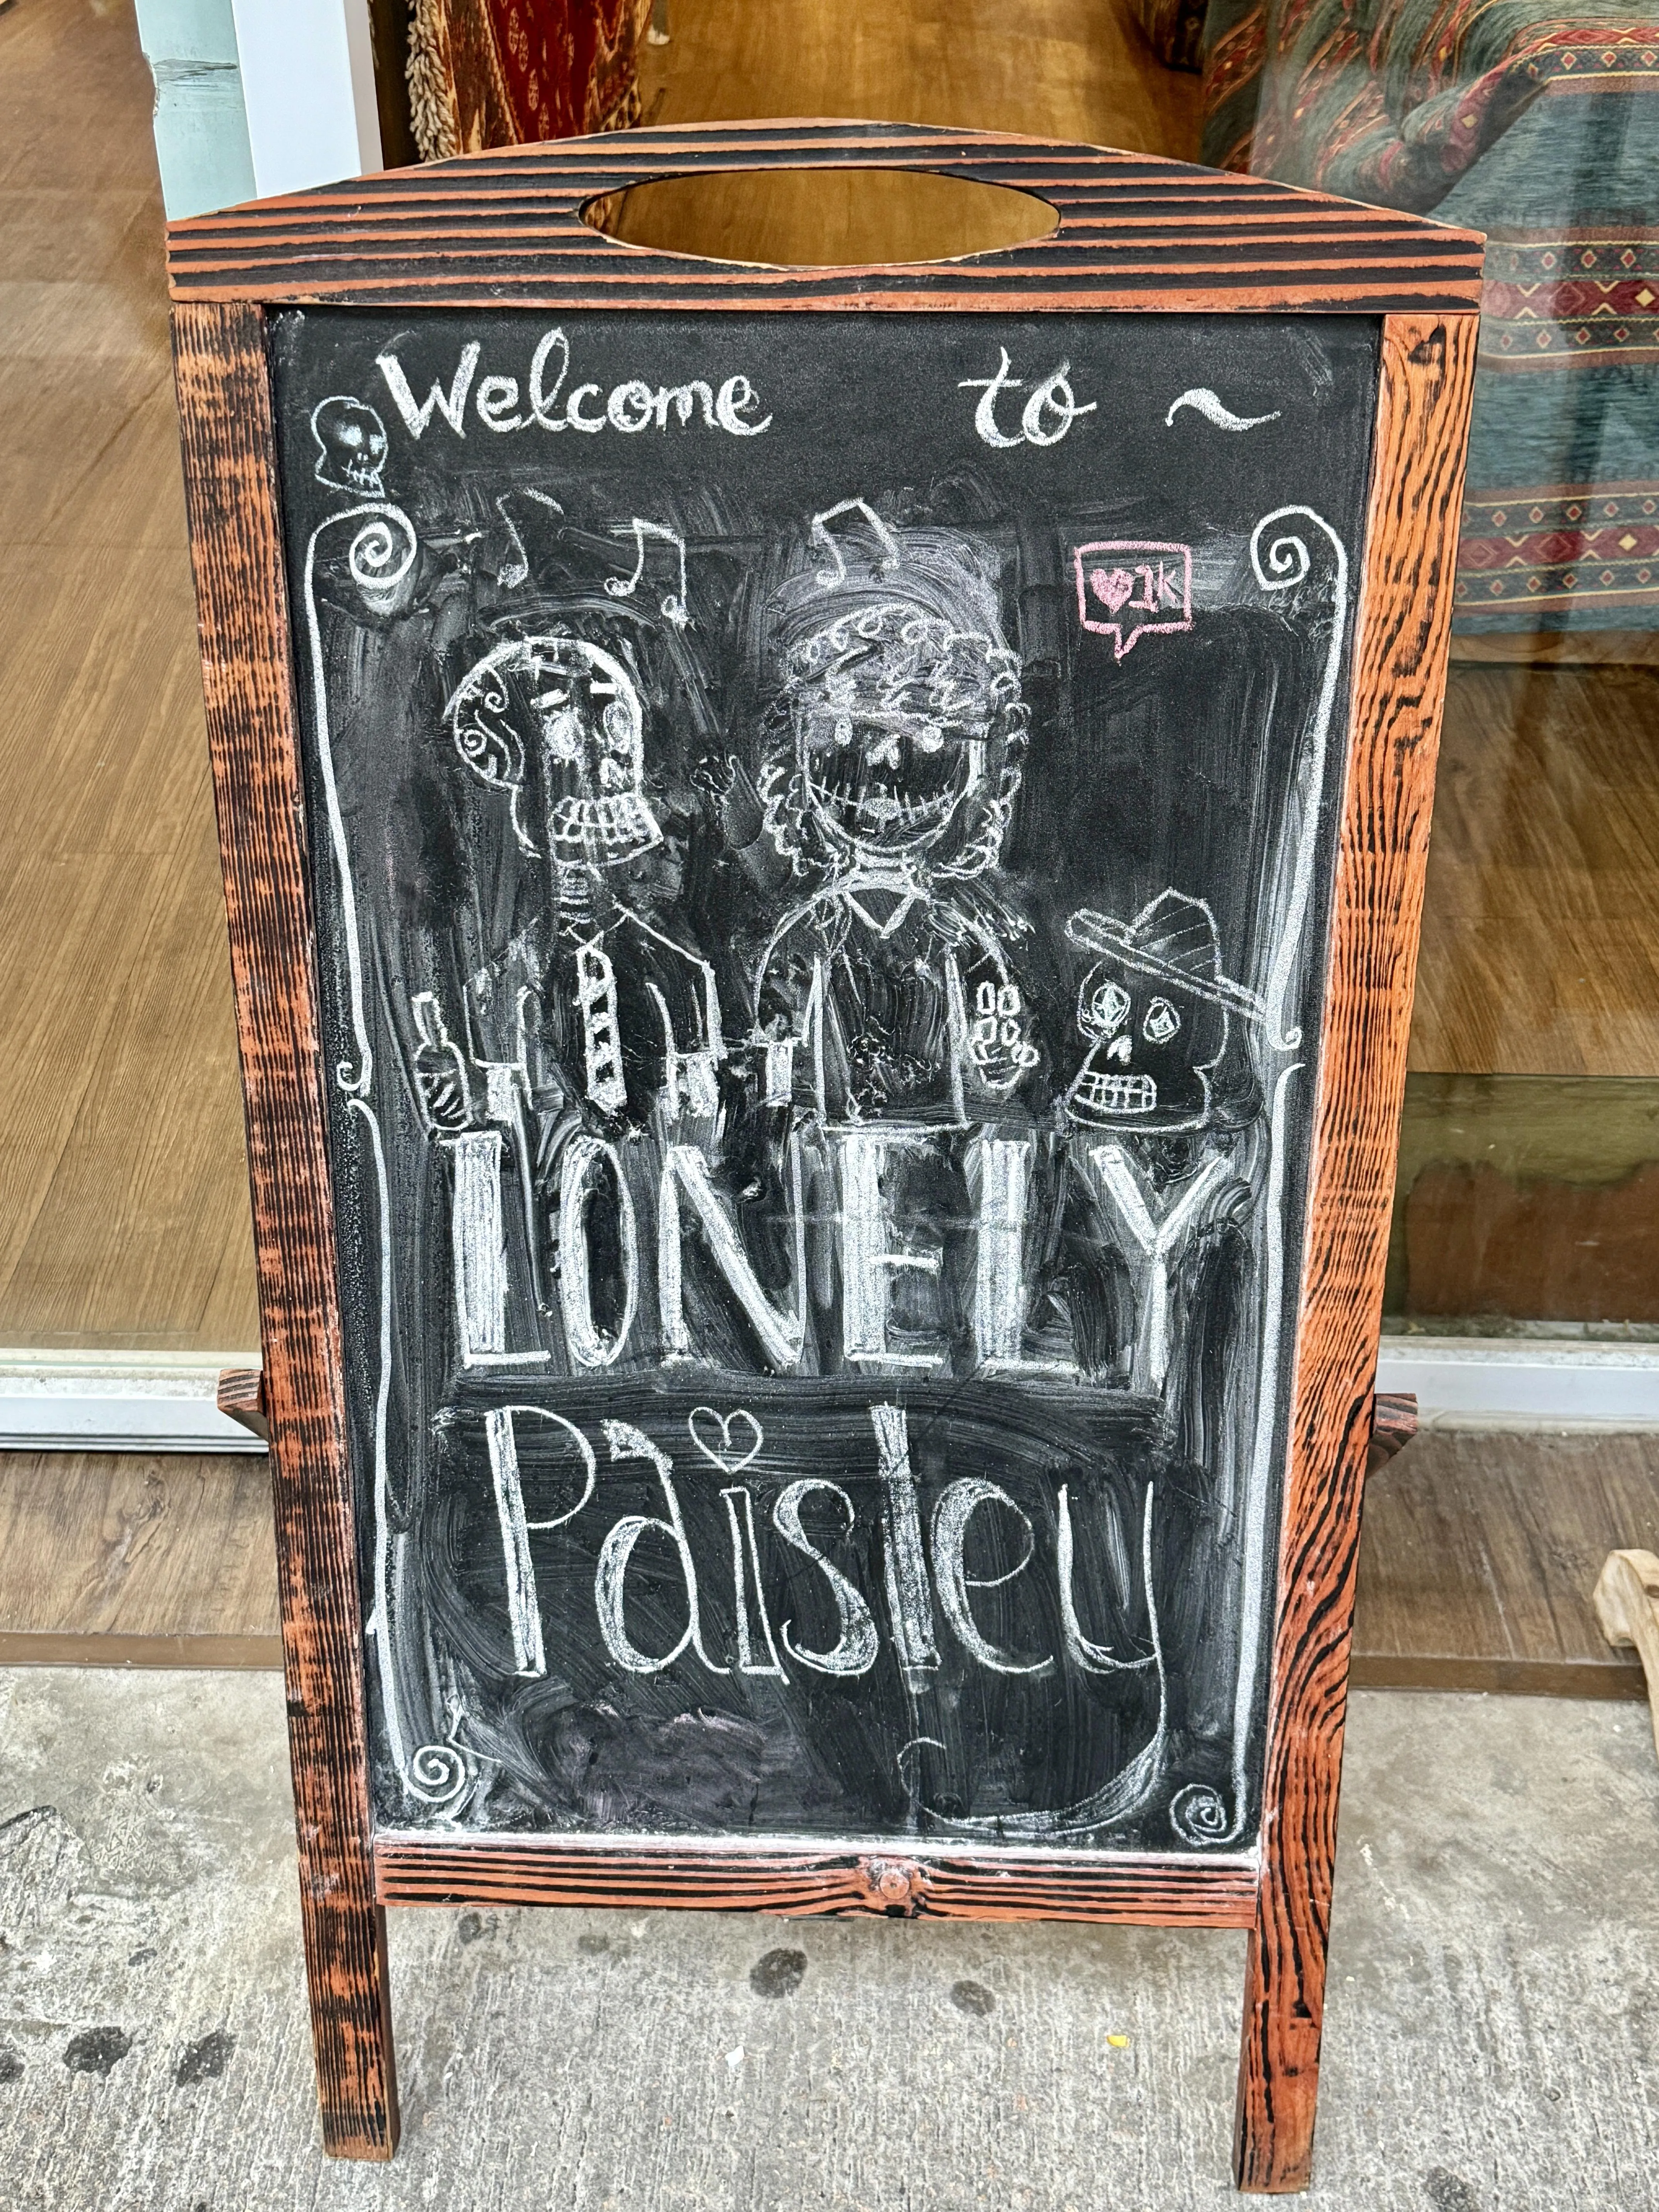 Welcome to ~
♥1k
LONELY
Paisley